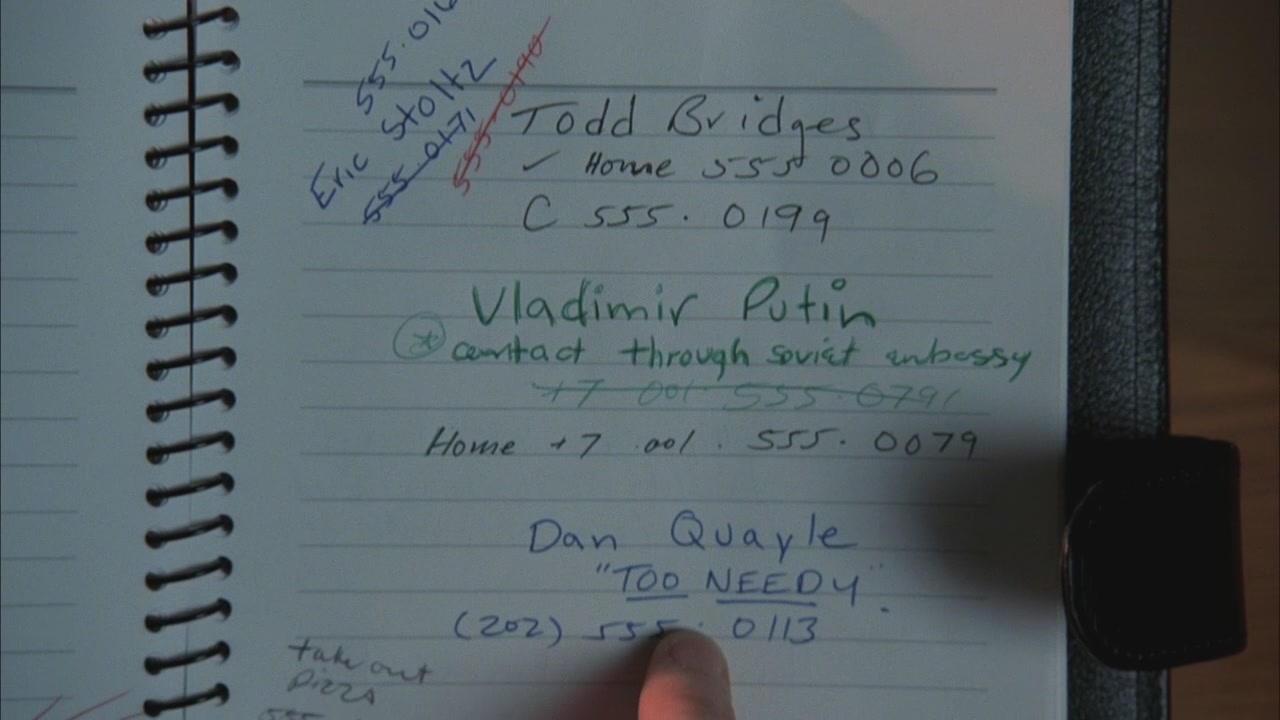 555.016
Eric Stoltz
555-0171
555-0190
Todd Bridges
✓ Home 555 0006
C 555. 0199
Vladimir Putin
* contact through soviet embassy
+7 001 555.0791
Home +7 .001. 555. 0079
Dan Quayle
"TOO NEEDY".
(202) 555. 0113
take out
Pizza
555